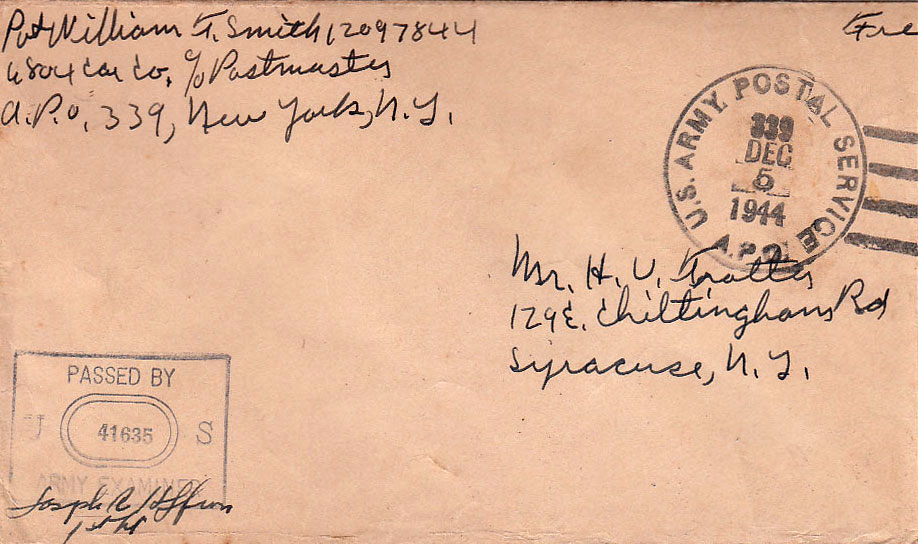 Pvt William F. Smith 12097844
Co. c/o Postmaster
A.P.O. 339, New York, N.Y.
Fre
U.S. ARMY POSTAL SERVICE
339
DEC
5
1944
A.P.O.
Mr. H. V. Trotter
129 E. Chiltingham Rd
Syracuse, N.Y.
PASSED BY
U 41635 S
ARMY EXAMINER
Joseph
1st Lt